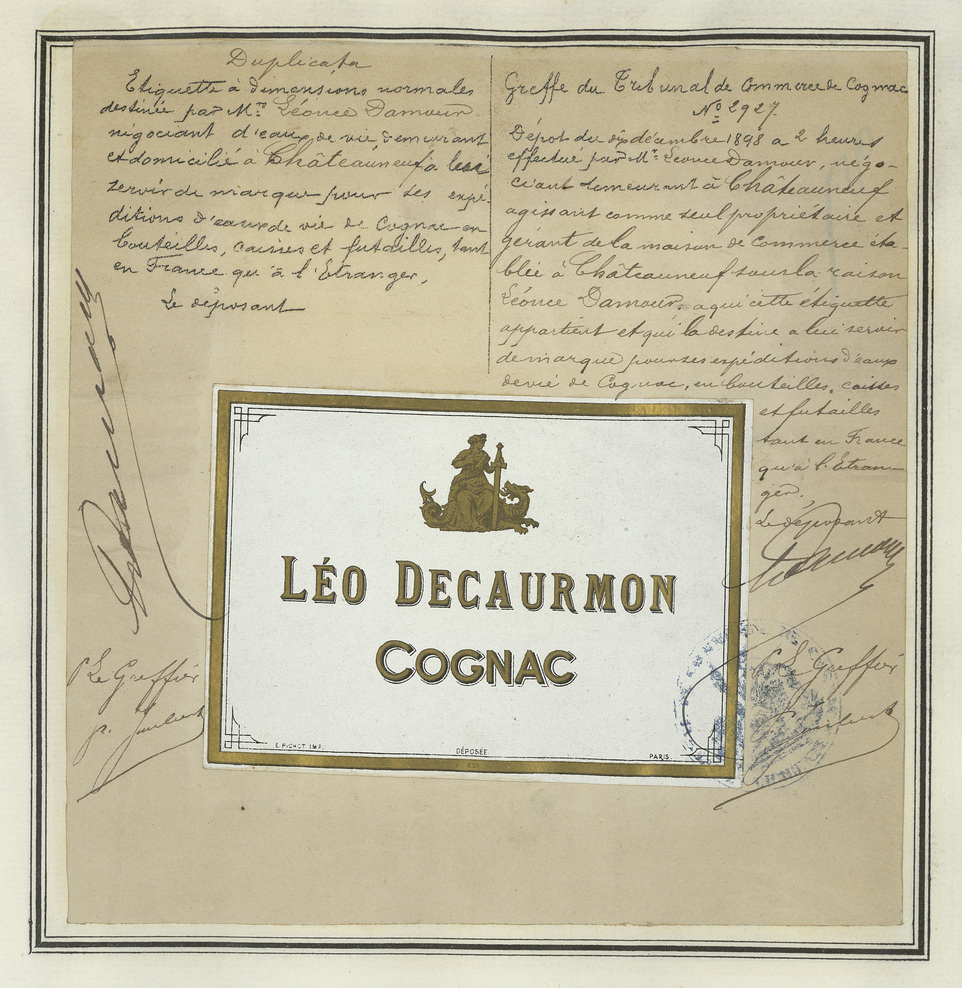 Duplicata
Etiquette à dimensions normales
destinée par Mr. Léonce Damour
négociant d'eaux de vie, demeurant
et domicilié à Châteauneuf, à lui
servir de marque pour ses expé-
ditions d'eaux de vie de Cognac en
bouteilles, caisses et futailles, tant
en France qu'à l'Etranger,
Le déposant
Damour
Le Greffier
Greffe du Tribunal de Commerce de Cognac
No 2927.
Dépôt du dix décembre 1898 a 2 heures
effectué par Mr. Léonce Damour, négo-
ciant demeurant à Châteauneuf
agissant comme seul propriétaire et
gérant de la maison de commerce éta-
blie à Châteauneuf sous la raison
Léonce Damour, a qui cette étiquette
appartient et qui la destine a lui servir
de marque pour ses expéditions d'eaux
de vie de Cognac, en bouteilles, caisses
et futailles
tant en France
qu'à l'Etran-
ger.
Le déposant
Damour
Le Greffier
LÉO DECAURMON
COGNAC
E. PICHOT IMP.
DÉPOSÉE
PARIS.